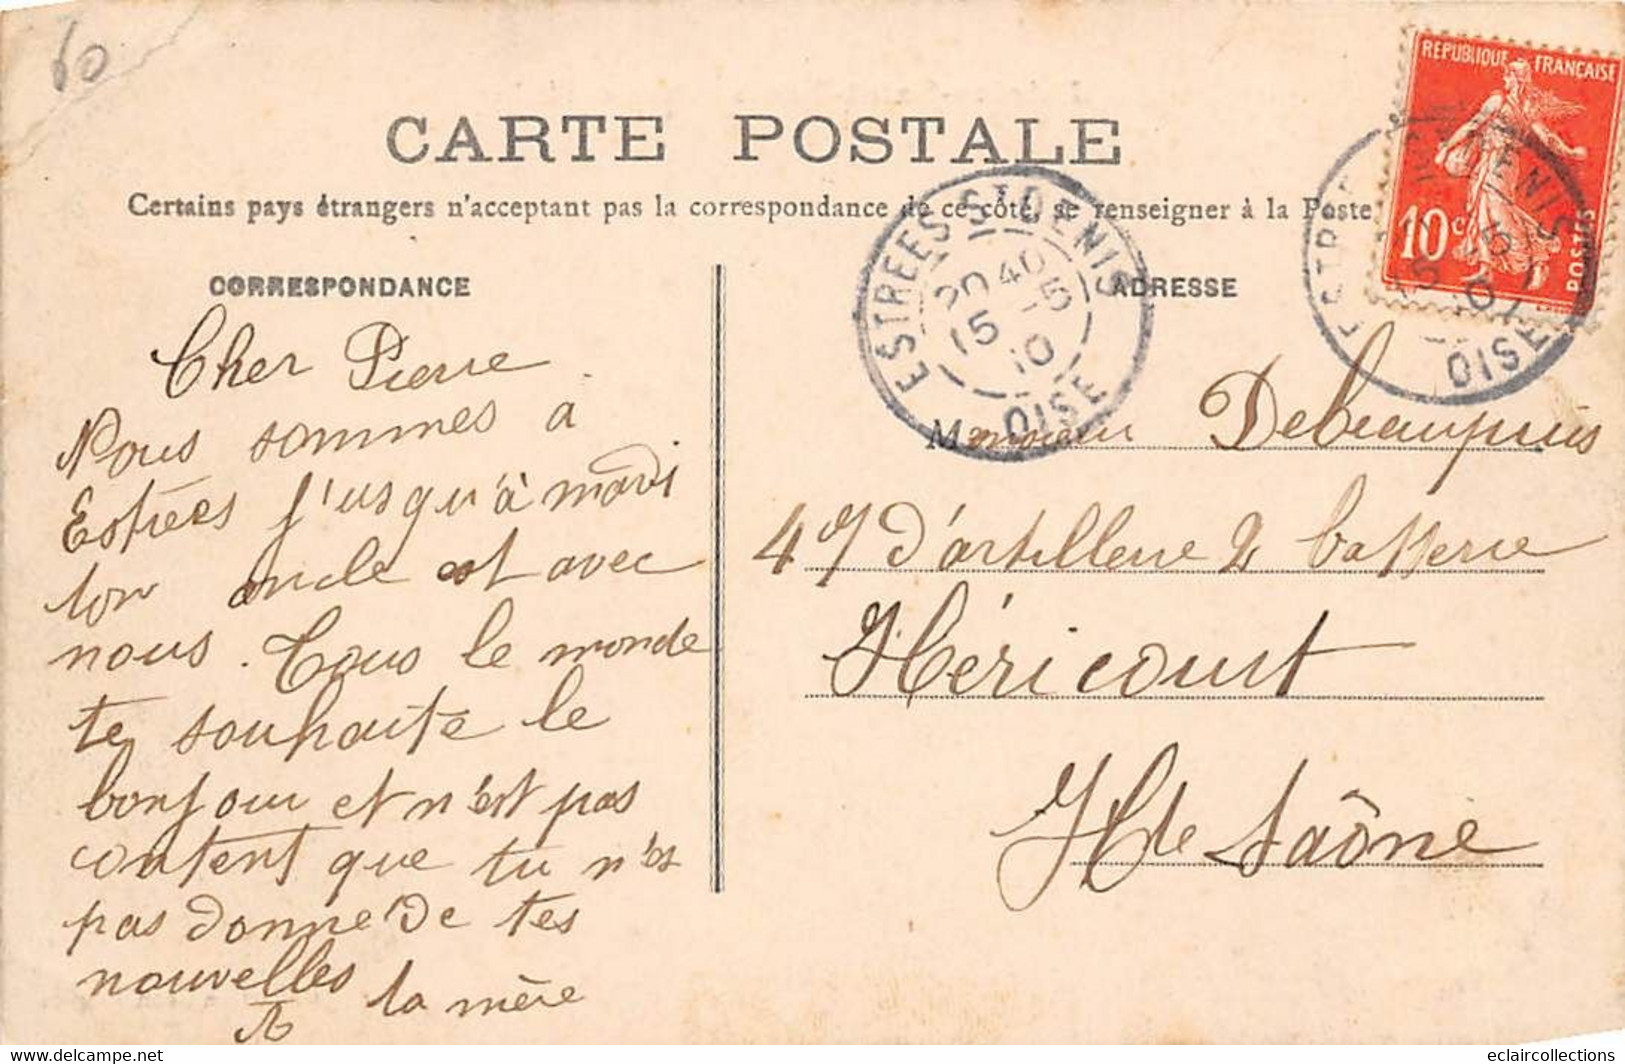 60
REPUBLIQUE FRANÇAISE
10c
POSTES
CARTE POSTALE
Certains pays étrangers n'acceptent pas la correspondance de ce côté, se renseigner à la Poste
ESTREES ST DENIS
20 40
15 -5
10
OISE
OISE
CORRESPONDANCE
ADRESSE
Cher Pierre
Nous sommes a
Estrées j'usqu'à mardi
ton oncle est avec
nous. Tous le monde
te souhaite le
bonjour et n'est pas
content que tu n'es
pas donne de tes
nouvelles
ta mère
Monsieur Debeaupuis
47 d'artillerie 2 batterie
Héricourt
Hte Saône
delcampe.net
eclaircollections